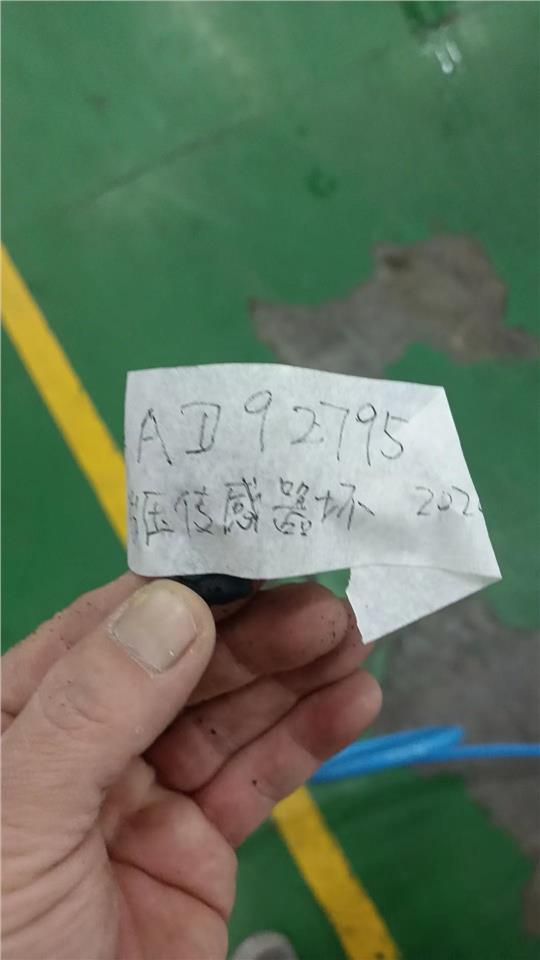 AD92795
压传感器坏 202